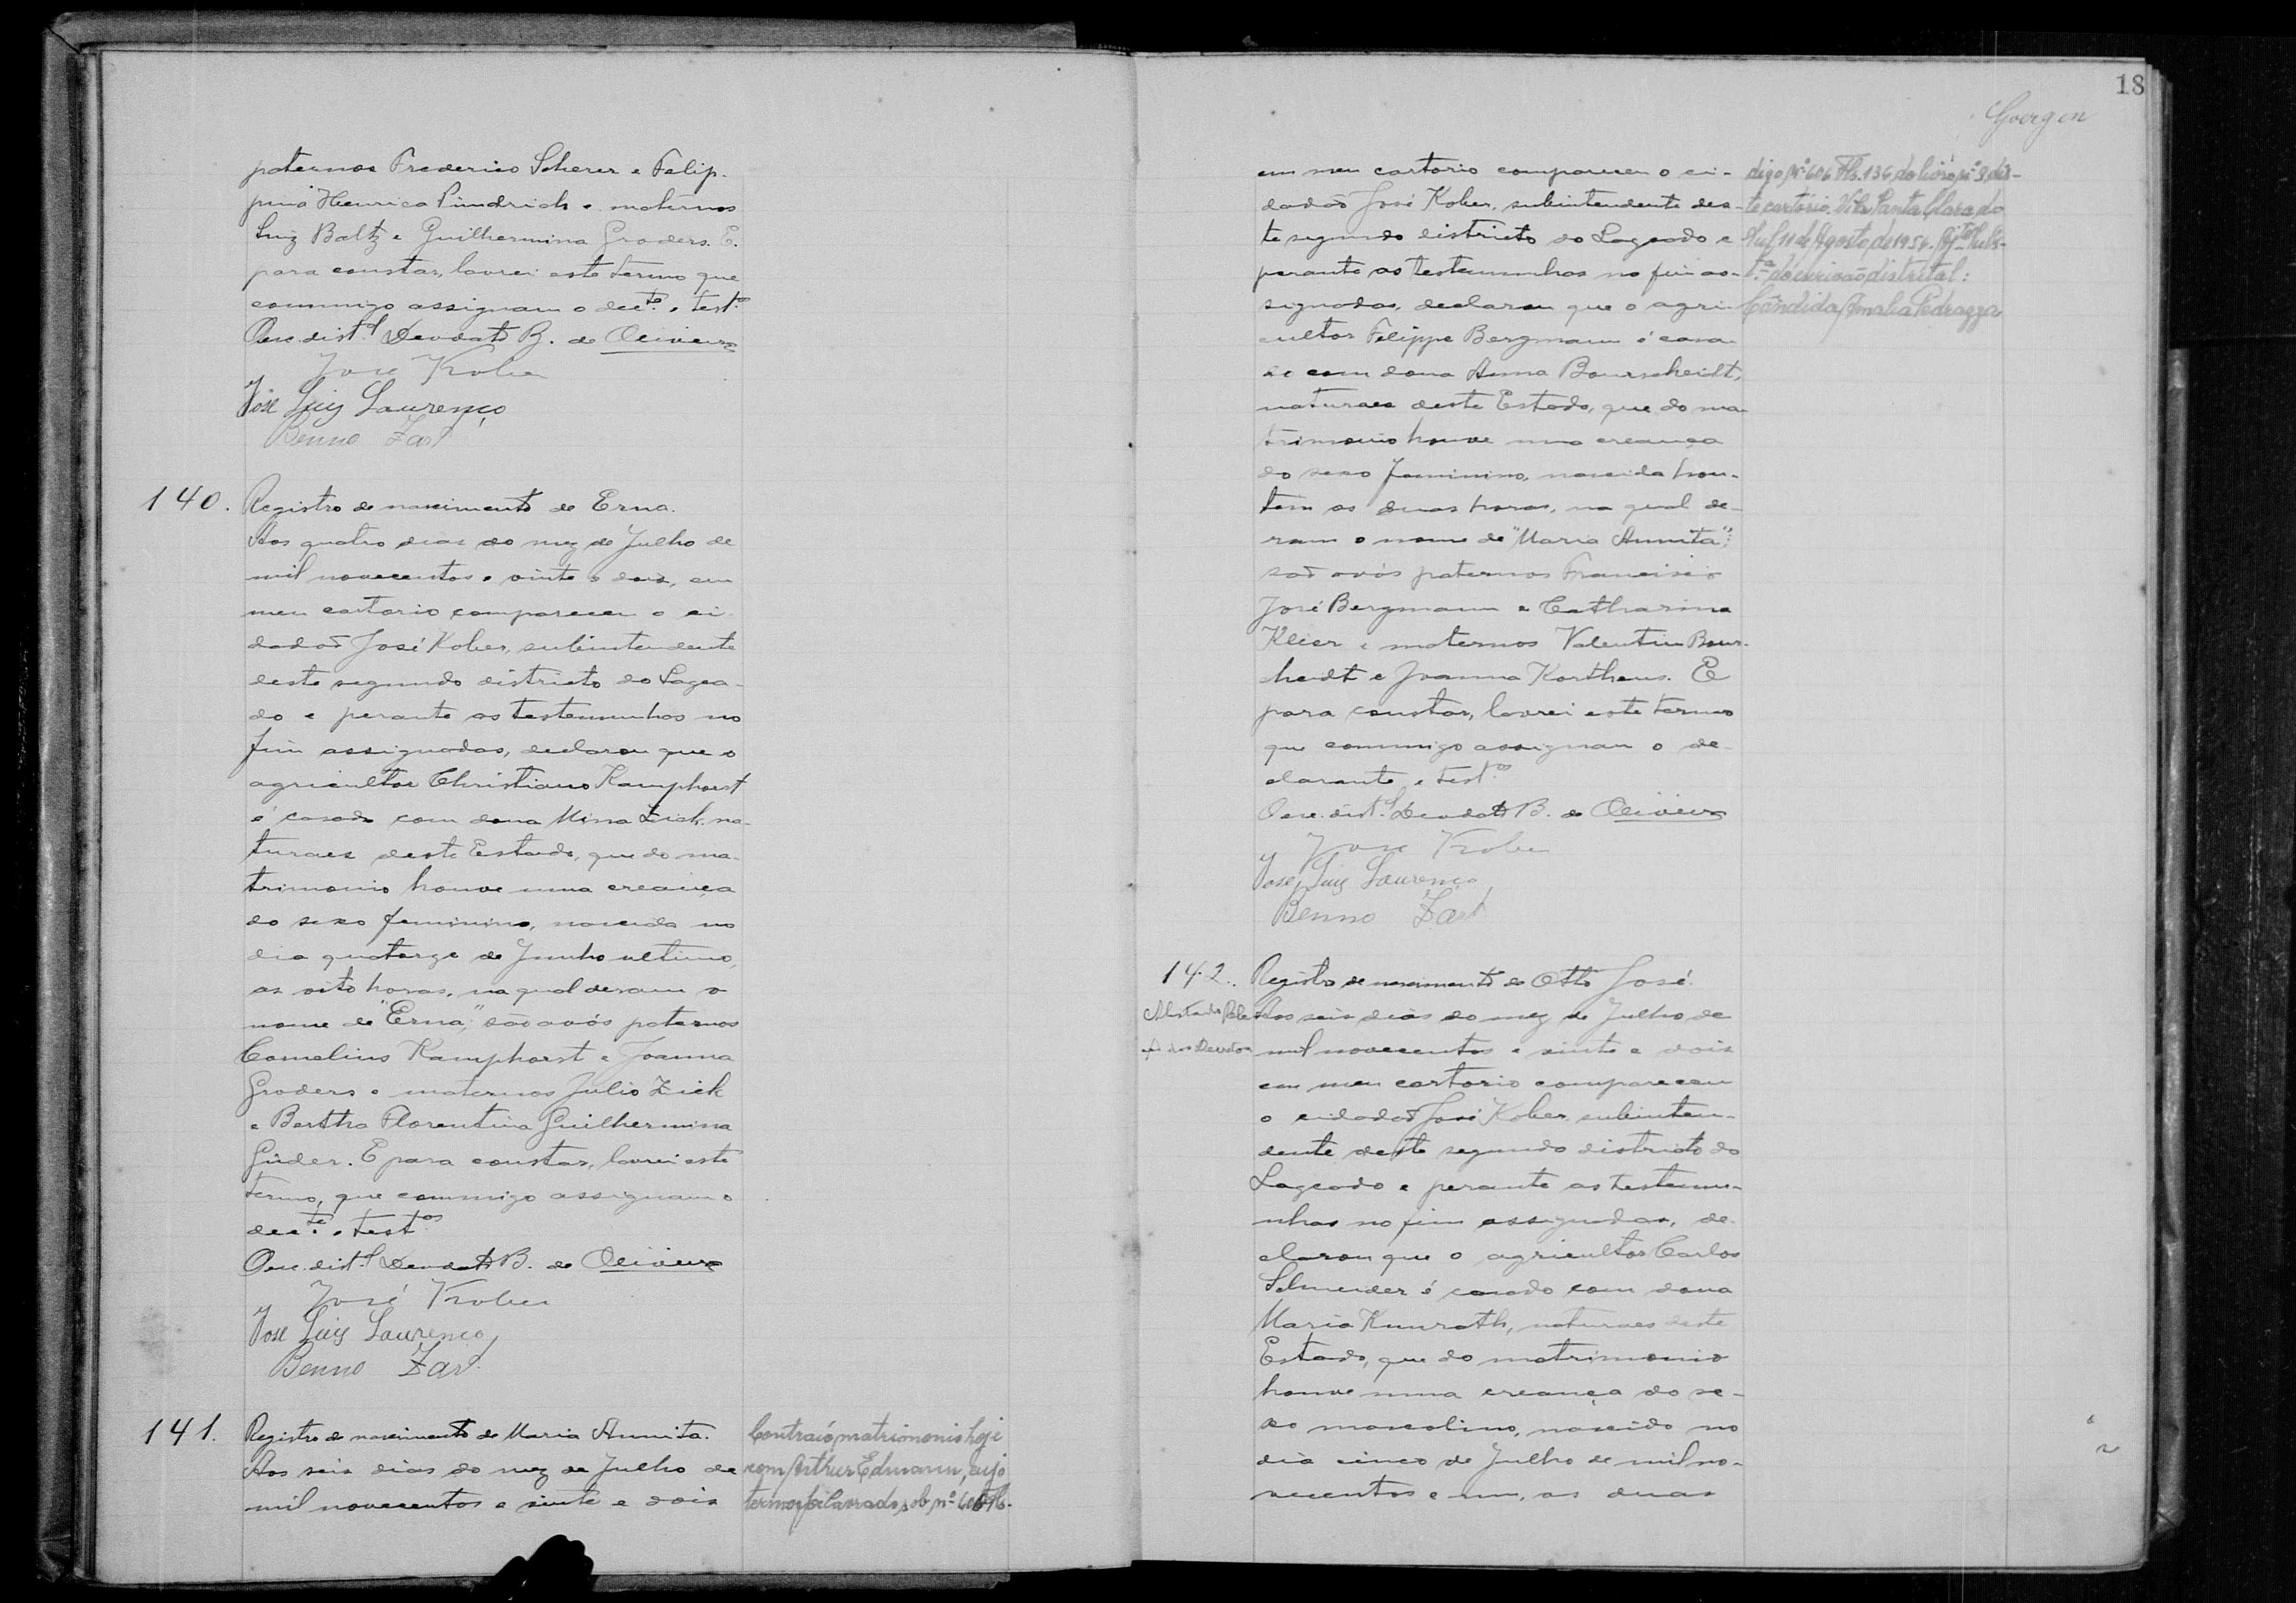 paternos Frederico Scherer e Felip-
pina Henrica Pündrich e maternos
Luiz Baltz e Guilhermina Groders. E.
para constar, lavrei este termo que
commigo assignam o decte. e testas
Oesc. distal Deodato B. de Oliveira
José Kober
José Luiz Laurenço
Benno Zart
140. Registro de nascimento de Erna.
Aos quatro dias do mez de Julho de
mil novecentos e vinte e dois, em
meu cartorio compareceu o ci-
dadaõ José Kober, subintendente
deste segundo districto do Lagea-
do e perante as testemunhas no
fim assignadas, declarou que o
agricultor Christiano Kamphorst
é casado com dona Minna Zick, na-
turaes deste Estado, que do ma-
trimonio houve uma creança
do sexo feminino, nascida no
dia quatorze de Junho ultimo,
as oito horas, na qual deram o
nome de "Erna"; são avós paternos
Cornelius Kamphorst e Joanna
Groders e maternos Julio Zick
e Bertha Florentina Guilhermina
Güder. E para constar, lavrei este
termo, que commigo assignam o
decte. e testas
Oesc. distal Deodato B. de Oliveira
José Kober
José Luiz Laurenço
Benno Zart.
141. Registro de nascimento de Maria Annita.
Aos seis dias do mez de Julho de
mil novecentos e vinte e dois
Contraió matrimonio hoje
com Arthur Edmann, cujo
termo foi lavrado sob nº 606 Fls.
18
Goergen
em meu cartorio compareceu o ci-
dadaõ José Kober, subintendente des-
te segundo districto do Lageado e
perante as testemunhas no fim as-
signadas, declarou que o agri-
cultor Filippe Bergmann é casa-
do com dona Anna Bourscheidt,
naturaes deste Estado, que do ma-
trimonio houve uma creança
do sexo feminino, nascida hon-
tem as duas horas, na qual de-
ram o nome de "Maria Annita";
saõ avós paternos Francisco
José Bergmann e Catharina
Klier e maternos Valentin Bour-
cheidt e Joanna Korthaus. E
para constar, lavrei este termo
que commigo assignam o de-
clarante e testas
Oesc. distal Deodato B. de Oliveira
José Kober
José Luiz Laurenço
Benno Zart
digo, Nº 606 Fls. 136, do livro nº 9, dês-
te cartorio. Vila Santa Clara do
Sul, 11 de Agosto, de 1954. Ajte Subs-
ta do escrivão distrital:
Cândida Amalia Pedrazza
142. Registro de nascimento de Otto José.
Alistado pela
Aos seis dias do mez de Julho de
mil novecentos e vinte e dois
em meu cartorio compareceu
o cidadaõ José Kober, subinten-
dente deste segundo districto do
Lageado e perante as testemu-
nhas no fim assignadas, de-
clarou que o agricultor Carlos
Schneider é casado com dona
Maria Kunrath, naturaes deste
Estado, que do matrimonio
houve uma creança do se-
xo masculino, nascido no
dia cinco de Julho de mil no-
vecentos e um, as duas